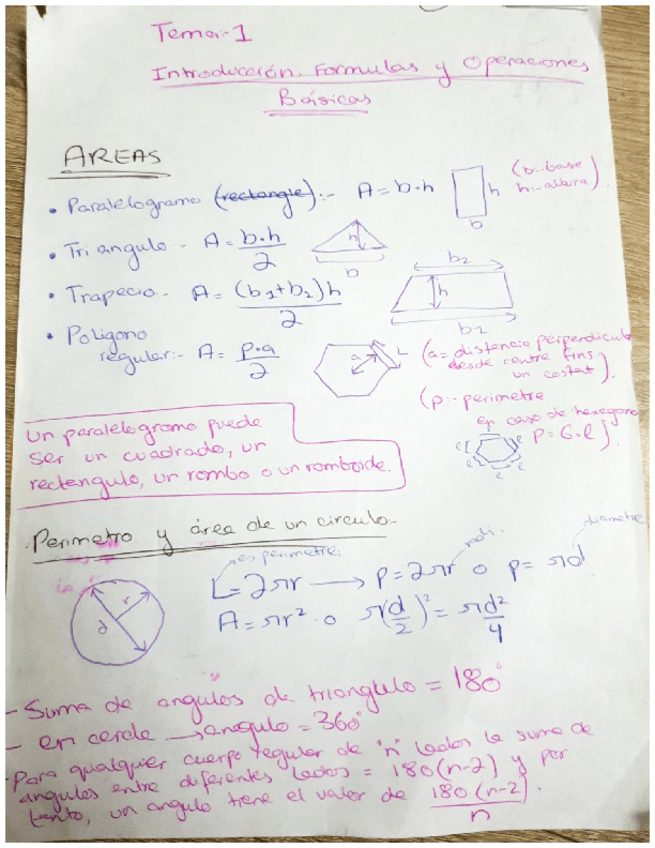 Tema-1
Introducción. Formulas y Operaciones
Básicas
AREAS
• Paralelogramo (rectangle):- A = b·h
h
b
(b:-base
h:-altura)
• Triangulo:- A = b·h/2
h
b
• Trapecio:- A = (b1+b2)h/2
b2
h
b1
• Poligono
regular:- A = p·a/2
a
L
(a = distancia perpendicul
desde centre fins
un costat).
(p:- perimetre
en caso de hexagono
p = 6·l).
l
l
l
l
l
Un paralelogramo puede
ser un cuadrado, un
rectengulo, un rombo o un romboide.
Perimetro y área de un circulo.
es perimetre.
radi.
diametre
L = 2πr → p = 2πr o p = πd
r
d
A = πr² o π(d/2)² = πd²/4
- Suma de angulos de triangulo = 180°
- en cercle → angulo = 360°
- Para qualquier cuerpo regular de "n" lados la suma de
angulos entre diferentes lados = 180(n-2) y por
tanto, un angulo tiene el valor de 180(n-2)/n.